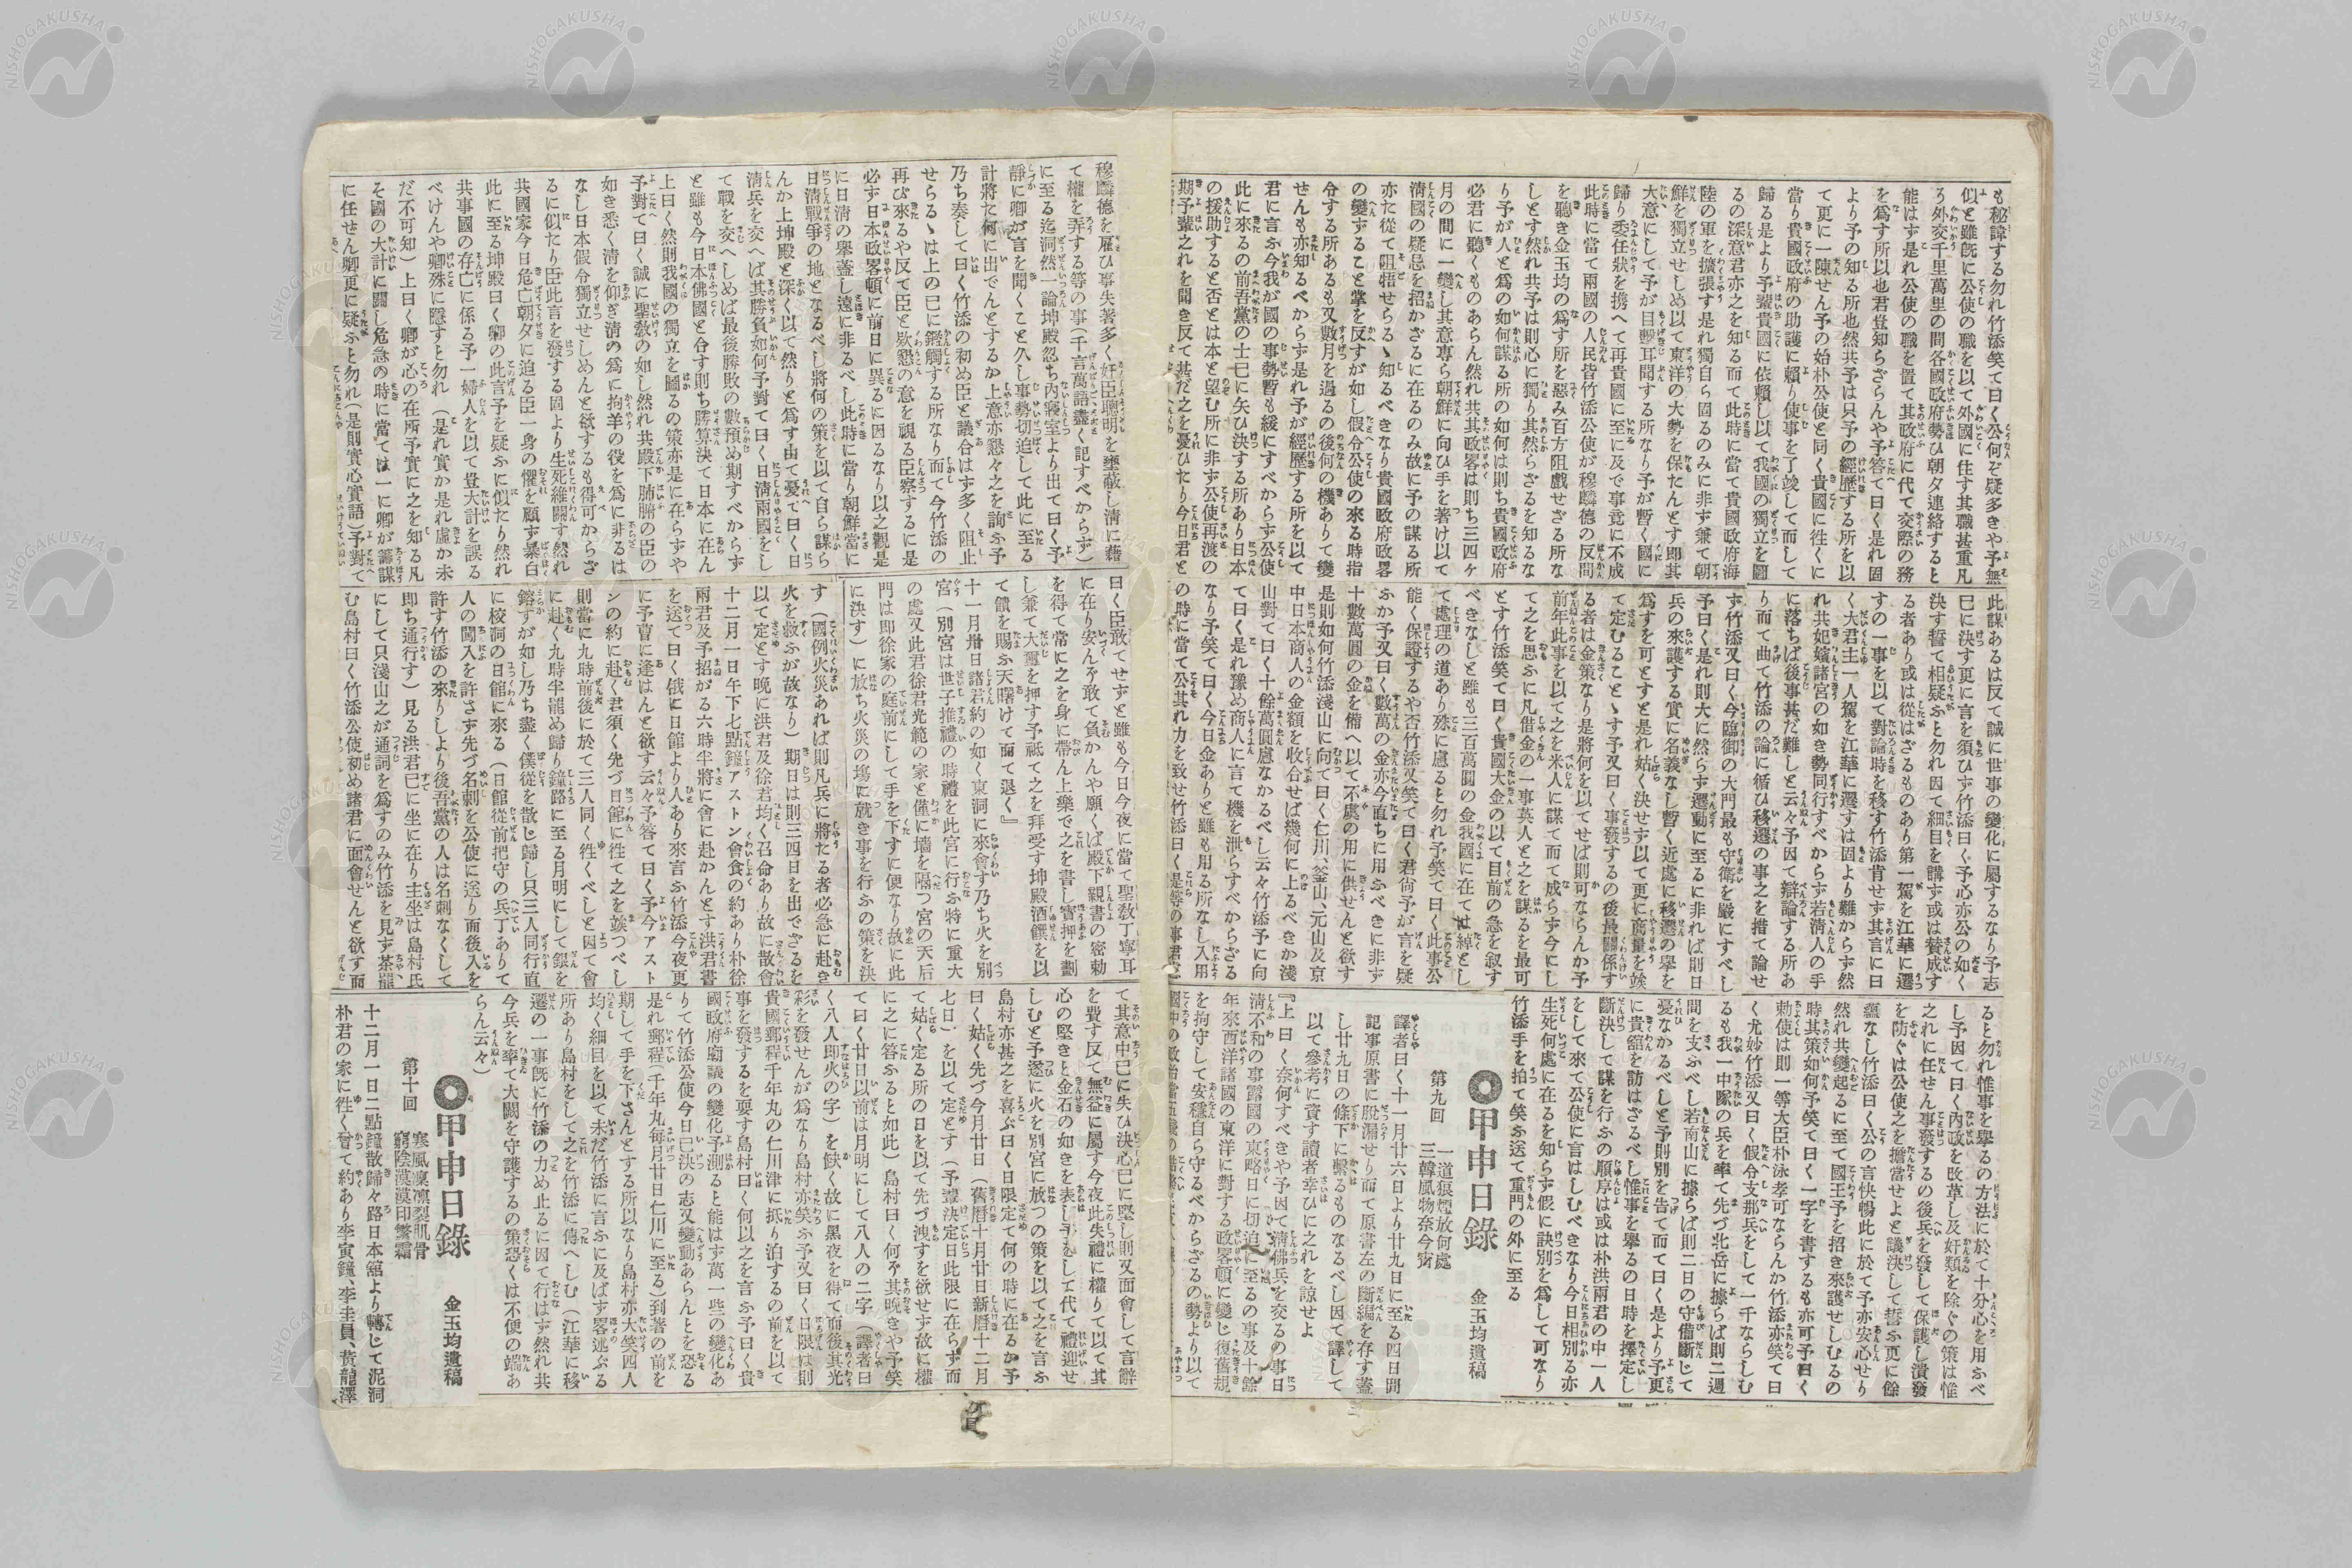 も秘諱する勿れ竹添笑て曰く公何ぞ疑多きや予無
似と雖既に公使の職を以て外國に住す其職甚重凡
う外交千里萬里の間各國政府勢ひ朝夕連絡すると
能はす是れ公使の職を置て其政府に代て交際の務
を爲す所以也君豈知らざらんや予答て曰く是れ固
より予の知る所也然共予は只予の經歴する所を以
て更に一陳せん予の始朴公使と同く貴國に徃くに
當り貴國政府の助護に頼り使事を了竣して而して
歸る是より予輩貴國に依頼し以て我國の獨立を圖
るの深意君亦之を知る而て此時に當て貴國政府海
陸の軍を擴張す是れ獨自ら固るのみに非す兼て朝
鮮を獨立せしめ以て東洋の大勢を保たんとす即其
大意にして予が目撃耳聞する所なり予が暫く國に
歸り委任狀を携へて再貴國に至に及で事竟に不成
此時に當て兩國の人民皆竹添公使が穆麟德の反間
を聽き金玉均の爲す所を惡み百方阻戲せざる所な
しとす然れ共予は則心に獨り其然らざるを知るな
り予が人と爲の如何謀る所の如何は則ち貴國政府
必君に聽くものあらん然れ共其政畧は則ち三四ヶ
月の間に一變し其意專ら朝鮮に向ひ手を著け以て
清國の疑忌を招かざるに在るのみ故に予の謀る所
亦た從て阻牾せらるゝ知るべきなり貴國政府政畧
の變すること掌を反すが如し假令公使の來る時指
令する所あるも又數月を過るの後何の機ありて變
せんも亦知るべからす是れ予が經歴する所を以て
君に言ふ今我が國の事勢暫も緩にすべからす公使
此に來るの前吾黨の士巳に矢ひ決する所あり日本
の援助すると否とは本と望む所に非す公使再渡の
期予輩之れを聞き反て甚だ之を憂ひたり今日君と
此謀あるは反て誠に世事の變化に屬するなり予志
巳に決す更に言を須ひす竹添曰く予心亦公の如く
決す誓て相疑ふと勿れ因て細目を講す或は賛成す
る者あり或は從はざるものあり第一駕を江華に遷
すの一事を以て對論時を移す竹添肯せす其言に曰
く大君主一人駕を江華に遷すは固より難からす然
れ共妃嬪諸宮の如き勢同行すべからす若清人の手
に落ちば後事甚だ難しと云々予因て辯論する所あ
り而て曲て竹添の論に循ひ移遷の事之を措て論せ
す竹添又曰く今臨御の大門最も守衛を嚴にすべし
予曰く是れ則大に然らす遷動に至るに非れば則日
兵の來護する實に名義なし暫く近處に移遷の擧を
爲すを可とすと是れ姑く決せす以て更に商量を竢
て定むることゝす予又曰く事發するの後最關係す
る者は金策なり是將何を以てせば則可ならんか予
前年此事を以て之を米人に謀て而て成らす今にし
て之を思ふに凡借金の一事英人と之を謀るを最可
とす竹添笑て曰く貴國大金の以て目前の急を叙す
べきなしと雖も三百萬圓の金我國に在ては綽とし
て處理の道あり殊に慮ると勿れ予笑て曰く此事公
能く保證するや否竹添又笑て曰く君尙予が言を疑
ふか予又曰く數萬の金亦今直ちに用ふべきに非す
十數萬圓の金を備へ以て不虞の用に供せんと欲す
是則如何竹添淺山に向て曰く仁川、釜山、元山及京
中日本商人の金額を收合せば幾何に上るべきか淺
山對て曰く十餘萬圓慮なかるべし云々竹添予に向
て曰く是れ豫め商人に言て機を泄らすべからざる
なり予笑て曰く今日金ありと雖も用る所なし入用
の時に當て公其れ力を致せ竹添曰く是等の事君憂
ると勿れ惟事を擧るの方法に於て十分心を用ふべ
し予因て曰く内政を改革し及奸類を除くの策は惟
之れに任せん事發するの後兵を發して保護し潰發
を防くは公使之を擔當せよと議決して誓ふ更に餘
蘊なし竹添曰く公の言快暢此に於て予亦安心せり
然れ共變起るに至て國王予を招き來護せしむるの
時其策如何予笑て曰く一字を書するも亦可予曰く
勅使は則一等大臣朴泳孝可ならんか竹添亦笑て曰
く尤妙竹添又曰く假令支那兵をして一千ならしむ
るも我一中隊の兵を率て先づ北岳に據らば則二週
間を支ふべし若南山に據らば則二日の守備斷じて
憂なかるべしと予則別を告て而て曰く是より予更
に貴舘を訪はざるべし惟事を擧るの日時を擇定し
斷決して謀を行ふの順序は或は朴洪兩君の中一人
をして來て公使に言はしむべきなり今日相別る亦
生死何處に在るを知らす假に訣別を爲して可なり
竹添手を拍て笑ふ送て重門の外に至る
甲申日錄
金玉均遺稿
第九回
一道狼煙放何處
三韓風物奈今霄
譯者曰く十一月廿六日より廿九日に至る四日間
記事原書に脱漏せり而て原書左の斷編を存す蓋
し廿九日の條下に繋るものなるべし因て譯して
以て參考に資す讀者幸ひに之れを諒せよ
『上曰く奈何すべきや予因て清佛兵を交るの事日
清不和の事露國の東略日に切迫に至るの事及十餘
年來西洋諸國の東洋に對する政畧頓に變じ復舊規
を拘守して安穩自ら守るべからざるの勢より以て
穆麟德を雇ひ事失著多く奸臣聰明を壅蔽し清に藉
て權を弄する等の事(千言萬語盡く記すべからず)
に至る迄洞然一論坤殿忽ち内寢室より出て曰く予
靜に卿が言を聞くこと久し事勢切迫して此に至る
計將た何に出でんとするか上意亦懇々之を詢ふ予
乃ち奏して曰く竹添の初め臣と議合はす多く阻止
せらるゝは上の巳に鑑觸する所なり而て今竹添の
再び來るや反て臣と欵懇の意を視る臣察するに是
必す日本政畧頓に前日に異るに因るなり以之觀是
に日清の擧蓋し遠に非るべし此時に當り朝鮮當に
日清戰爭の地となるべし將何の策を以て自ら謀ら
んか上坤殿と深く以て然りと爲す由て憂て曰く日
清兵を交へば其勝負如何予對て曰く日清兩國をし
て戰を交へしめば最後勝敗の數預め期すべからす
と雖も今日本佛國と合す則ち勝算決て日本に在ん
上曰く然則我國の獨立を圖るの策亦是に在らすや
予對て曰く誠に聖敎の如し然れ共殿下肺腑の臣の
如き悉く清を仰ぎ清の爲に拘羊の役を爲に非るは
なし日本假令獨立せしめんと欲するも得可からざ
るに似たり臣此言を發する固より生死維關す然れ
共國家今日危亡朝夕に迫る臣一身の懼を顧す暴白
此に至る坤殿曰く卿の此言予を疑ふに似たり然れ
共事國の存亡に係る予一婦人を以て豈大計を誤る
べけんや卿殊に隱すと勿れ(是れ實か是れ虛か未
だ不可知)上曰く卿が心の在所予實に之を知る凡
そ國の大計に關し危急の時に當ては一に卿が籌謀
に任せん卿更に疑ふと勿れ(是則實心實語)予對て
曰く臣敢てせすと雖も今日今夜に當て聖敎丁寧耳
に在り安んそ敢て負かんや願くば殿下親書の密勅
を得て常に之を身に帶ん上樂で之を書し實押を劃
し兼て大璽を押す予祗て之を拜受す坤殿酒饌を以
て饋を賜ふ天曙けて而て退く』
十一月卅日諸君約の如く東洞に來會す乃ち火を別
宮(別宮は世子推禮の時禮を此宮に行ふ特に重大
の處又此君徐君光範の家と僅に墻を隔つ宮の天后
門は即徐家の庭前にして手を下すに便なり故に此
に決す)に放ち火災の塲に就き事を行ふの策を決
す(國例火災あれば則凡兵に將たる者必急に赴き
火を救ふが故なり)期日は則三四日を出でざるを
以て定とす晩に洪君及徐君均く召命あり故に散會
十二月一日午下七點鐘アストン會食の約あり朴徐
兩君及予招がる六時半將に會に赴かんとす洪君書
を送て曰く俄に日館より人あり來言ふ竹添今夜更
に予曹に逢はんと欲す云々予答て曰く予今アスト
ンの約に赴く君須く先づ日館に徃て之を竢つべし
則當に九時前後に於て三人同く徃くべしと因て會
に赴く九時半罷め歸り鐘路に至る月明にして銀を
鎔すが如し乃ち盡く僕從を散じ歸し只三人同行直
に校洞の日館に來る(日館從前把守の兵丁ありて
人の闖入を許さす先づ名刺を公使に送り而後入を
許す竹添の來りしより後吾黨の人は名刺なくして
即ち通行す)見る洪君巳に坐に在り主坐は島村氏
にして只淺山之が通詞を爲すのみ竹添を見す茶罷
む島村曰く竹添公使初め諸君に面會せんと欲す而
て其意中巳に失ひ決心巳に堅し則又面會して言辭
を費す反て無益に屬す今夜此失禮に權りて以て其
心の堅きと金石の如きを表し予をして代て禮迎せ
しむと予遂に火を別宮に放つの策を以て之を言ふ
島村亦甚之を喜ぶ曰く日限定て何の時に在るか予
曰く姑く先づ今月廿日(舊曆十月廿日新曆十二月
七日)を以て定とす(予輩決定日此限に在らす而
て姑く定る所の日を以て先づ洩すを欲せす故に權
に之に答ふると如此)島村曰く何ぞ其晩きや予笑
て曰く廿日以前は月明にして八人の二字(譯者曰
く八人即火の字)を缺く故に黑夜を得て而後其光
彩を發せんが爲なり島村亦笑ふ予又曰く日限は則
貴國郵程千年丸の仁川津に抵り泊するの前を以て
事を發するを要す島村曰く何以之を言ふ予曰く貴
國政府廟議の變化予測ると能はす萬一些の變化あ
りて竹添公使今日巳決の志又變動あらんとを恐る
是れ郵程(千年丸毎月廿日仁川に至る)到著の前を
期して手を下さんとする所以なり島村亦大笑四人
均く細目を以て未だ竹添に言ふに及ばす畧述ぶる
所あり島村をして之を竹添に傳へしむ(江華に移
遷の一事既に竹添の力め止るに因て行はす然れ共
今兵を率て大闕を守護するの策恐くは不便の端あ
らん云々)
甲申日錄
金玉均遺稿
第十回
寒風凜凛裂肌骨
窮陰漠漠印繁霜
十二月一日二點鐘散歸々路日本舘より轉じて泥洞
朴君の家に徃く曾て約あり李寅鐘、李圭貟、黄龍澤